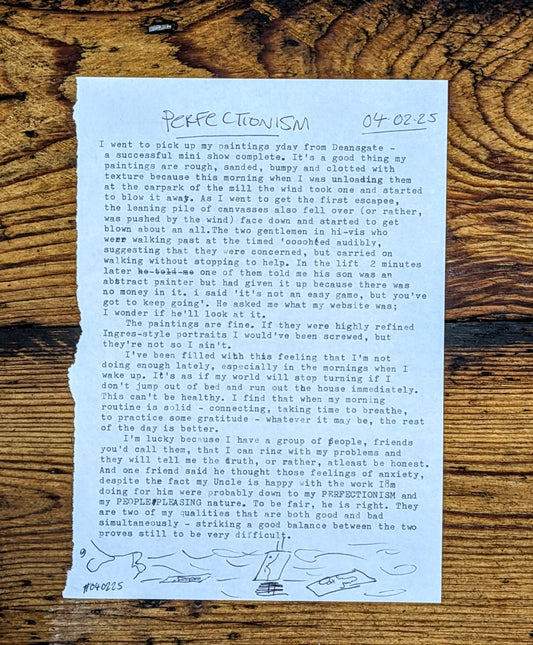 PERFECTIONISM 04.02.25
I went to pick up my paintings yday from Deansgate -
a successful mini show complete. It's a good thing my
paintings are rough, sanded, bumpy and clotted with
texture because this morning when I was unloading them
at the carpark of the mill the wind took one and started
to blow it away. As I went to get the first escapee,
the leaning pile of canvasses also fell over (or rather,
was pushed by the wind) face down and started to get
blown about an all.The two gentlemen in hi-vis who
were walking past at the timed 'oooohed audibly,
suggesting that they were concerned, but carried on
walking without stopping to help. In the lift 2 minutes
later he told me one of them told me his son was an
abstract painter but had given it up because there was
no money in it. i said 'it's not an easy game, but you've
got to keep going'. He asked me what my website was;
I wonder if he'll look at it.
The paintings are fine. If they were highly refined
Ingres-style portraits I would've been screwed, but
they're not so I ain't.
I've been filled with this feeling that I'm not
doing enough lately, especially in the mornings when I
wake up. It's as if my world will stop turning if I
don't jump out of bed and run out the house immediately.
This can't be healthy. I find that when my morning
routine is solid - connecting, taking time to breathe,
to practice some gratitude - whatever it may be, the rest
of the day is better.
I'm lucky because I have a group of people, friends
you'd call them, that I can ring with my problems and
they will tell me the truth, or rather, atleast be honest.
And one friend said he thought those feelings of anxiety,
despite the fact my Uncle is happy with the work I8m
doing for him were probably down to my PERFECTIONISM and
my PEOPLE PLEASING nature. To be fair, he is right. They
are two of my qualities that are both good and bad
simultaneously - striking a good balance between the two
proves still to be very difficult.
#040225